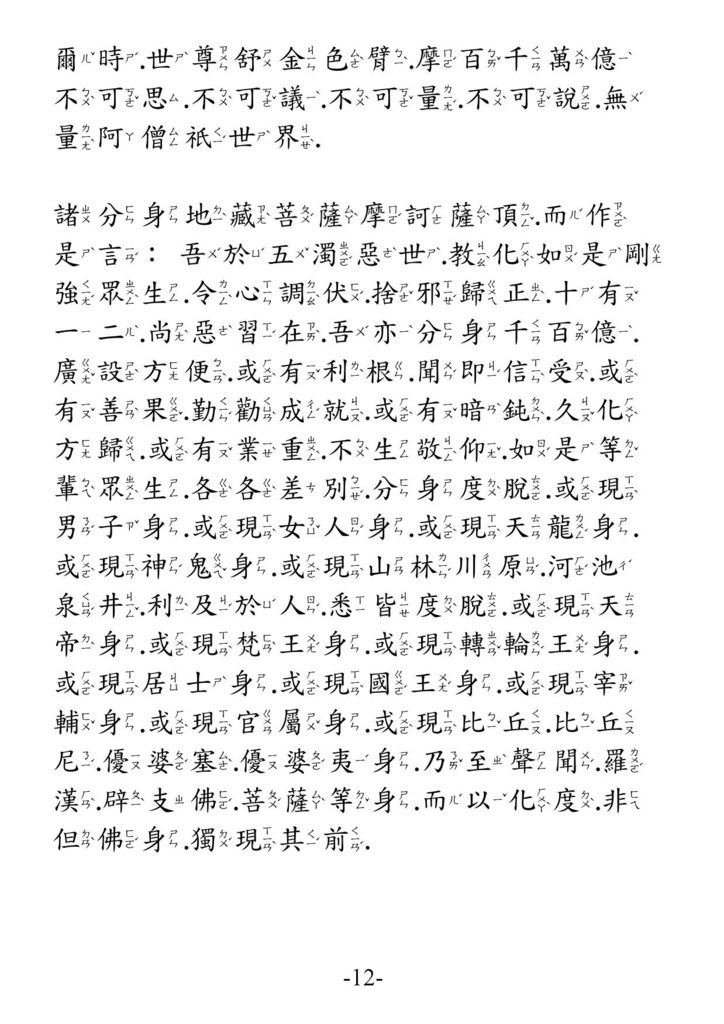 爾時.世尊舒金色臂.摩百千萬億
不可思.不可議.不可量.不可說.無
量阿僧祇世界.
諸分身地藏菩薩摩訶薩頂.而作
是言：吾於五濁惡世.教化如是剛
強眾生.令心調伏.捨邪歸正.十有
一二.尚惡習在.吾亦分身千百億.
廣設方便.或有利根.聞即信受.或
有善果.勤勸成就.或有暗鈍.久化
方歸.或有業重.不生敬仰.如是等
輩眾生.各各差別.分身度脫.或現
男子身.或現女人身.或現天龍身.
或現神鬼身.或現山林川原.河池
泉井.利及於人.悉皆度脫.或現天
帝身.或現梵王身.或現轉輪王身.
或現居士身.或現國王身.或現宰
輔身.或現官屬身.或現比丘.比丘
尼.優婆塞.優婆夷身.乃至聲聞.羅
漢.辟支佛.菩薩等身.而以化度.非
但佛身.獨現其前.
-12-